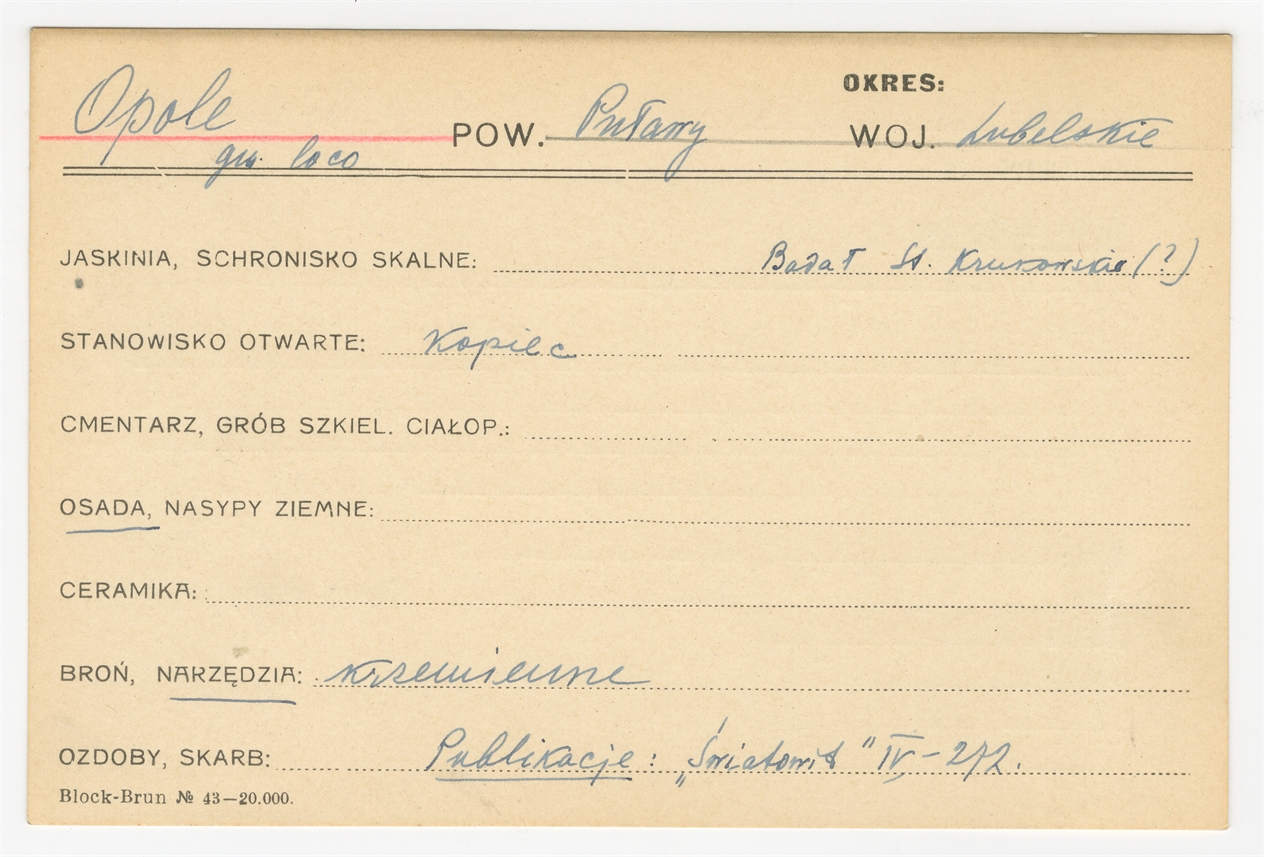 OKRES:
Opole POW. Puławy WOJ. Lubelskie
gm. loco
JASKINIA, SCHRONISKO SKALNE: Badał St. Krukowski (?)
STANOWISKO OTWARTE: Kopiec
CMENTARZ, GRÓB SZKIEL. CIAŁOP.:
OSADA, NASYPY ZIEMNE:
CERAMIKA:
BROŃ, NARZĘDZIA: krzemienne
OZDOBY, SKARB: Publikacje: „Światowit" IV – 272.
Block-Brun № 43—20.000.